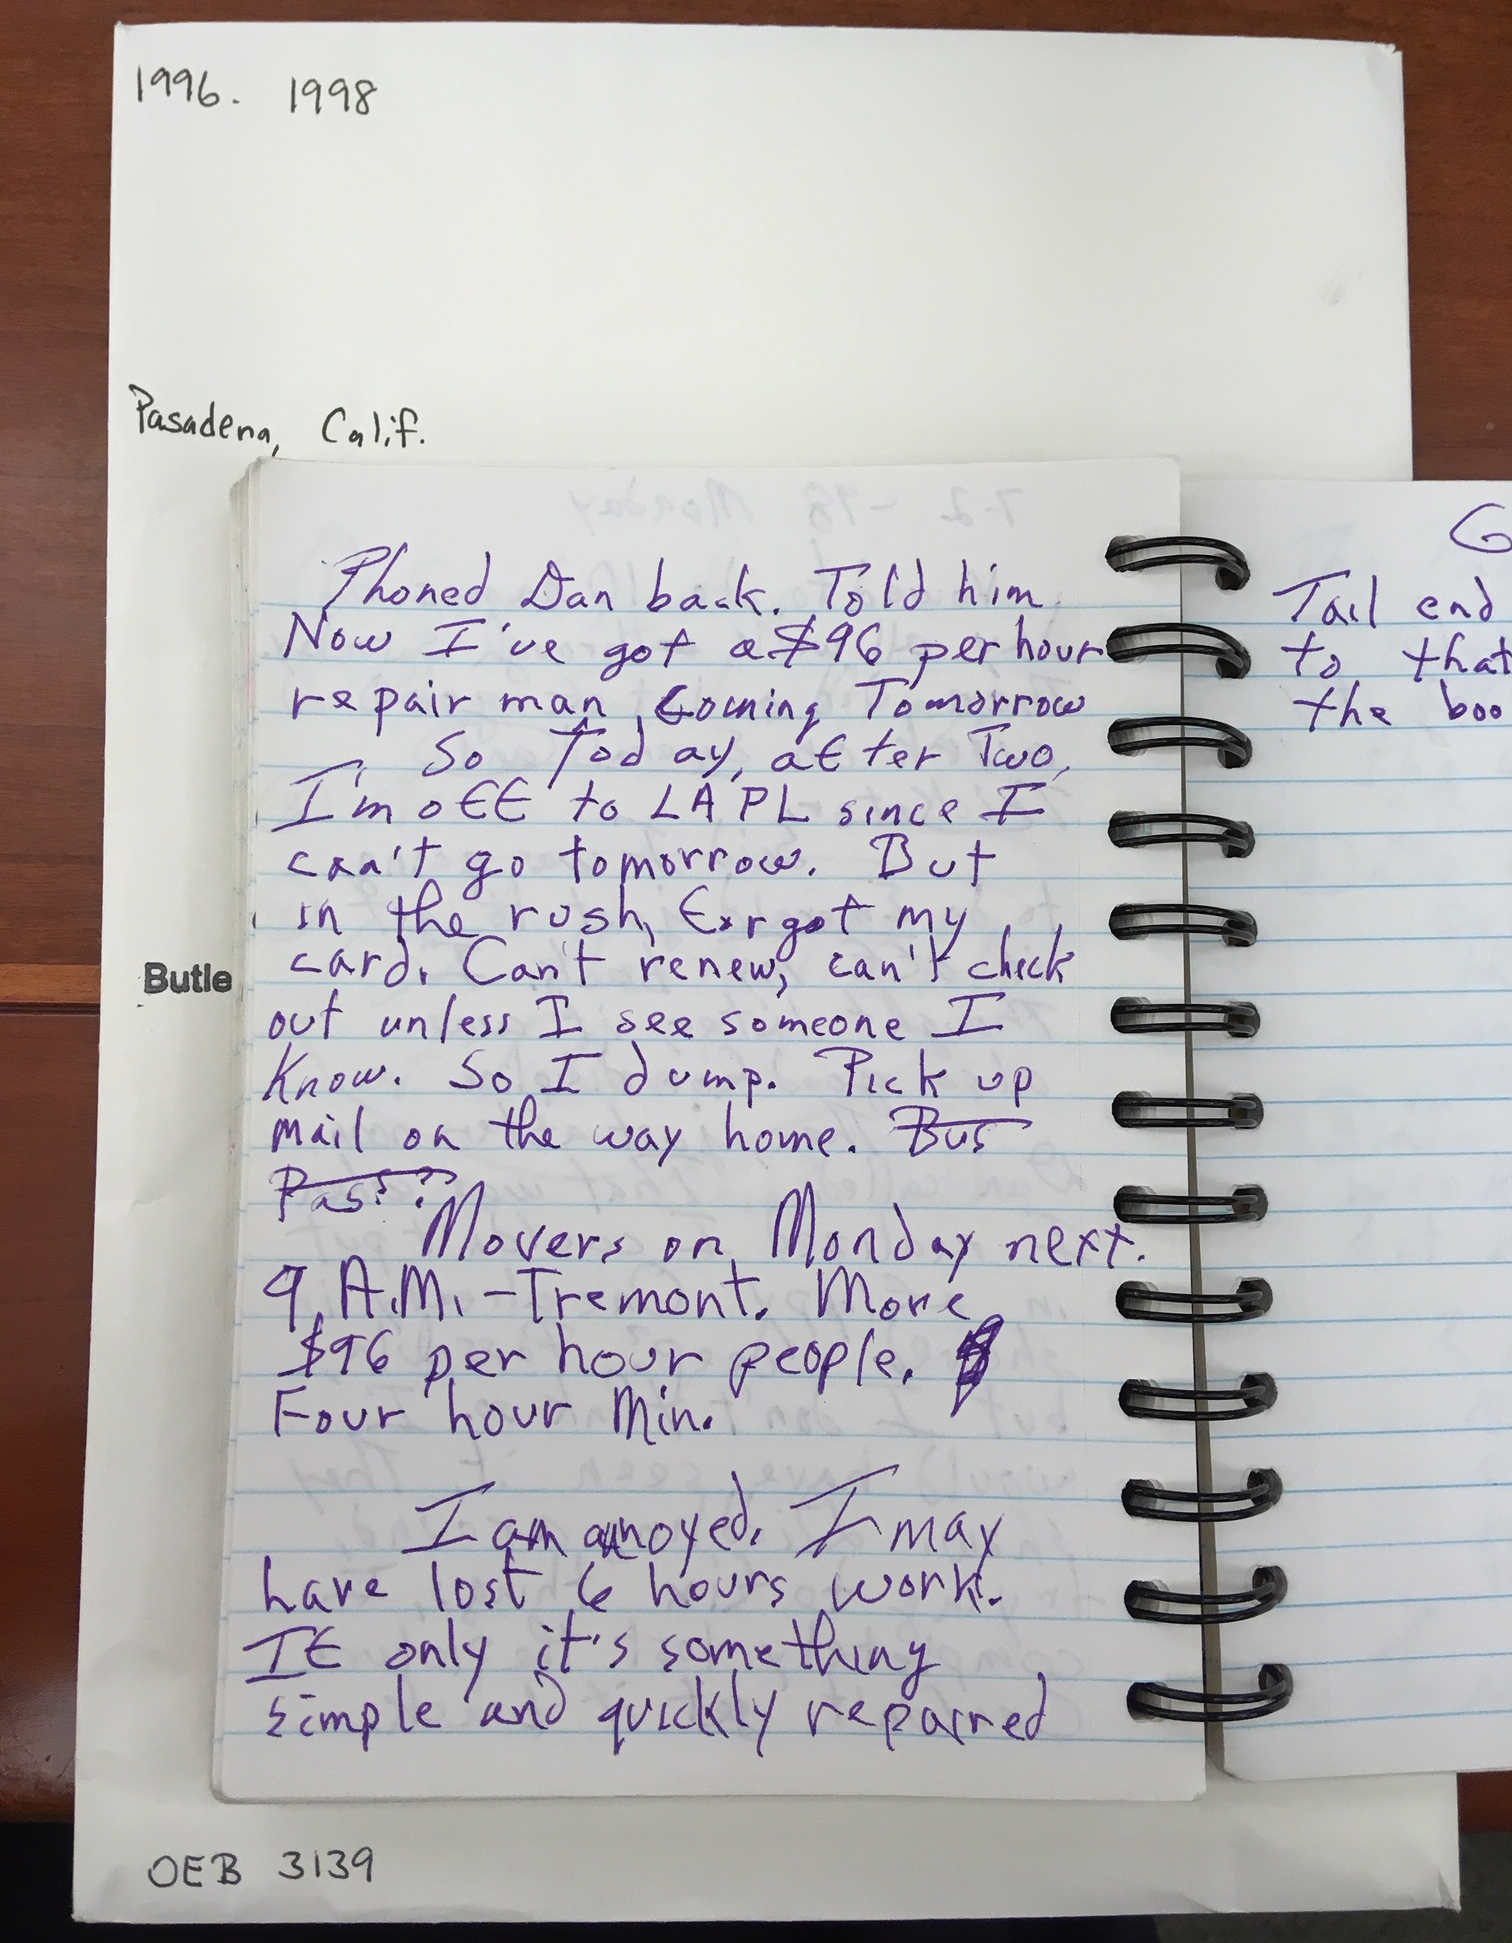 1996. 1998
Pasadena, Calif.
Butle
Phoned Dan back. Told him
Now I've got a $96 per hour
repair man, coming Tomorrow
So Today, after Two,
I'm off to LAPL since I
can't go tomorrow. But
in the rush, forgot my
card. Can't renew, can't check
out unless I see someone I
know. So I dump. Pick up
mail on the way home. Bus
Pass??
Movers on Monday next.
9 A.M. - Tremont. More
$96 per hour people.
Four hour Min.
I am annoyed. I may
have lost 6 hours work.
If only it's something
simple and quickly repaired
G
Tail end
to that
the boo
OEB 3139